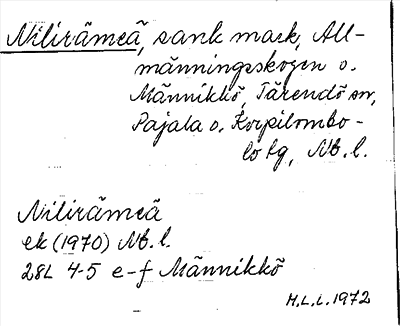 Nilirämeä, sank mark, All-
männingsskogen o.
Männikkö, Tärendö sn,
Pajala o. Korpilombo-
lo tg, Nb. l.
Nilirämeä
ek (1970) Nb. l.
28L 4-5 e-f Männikkö
H.L.L. 1972